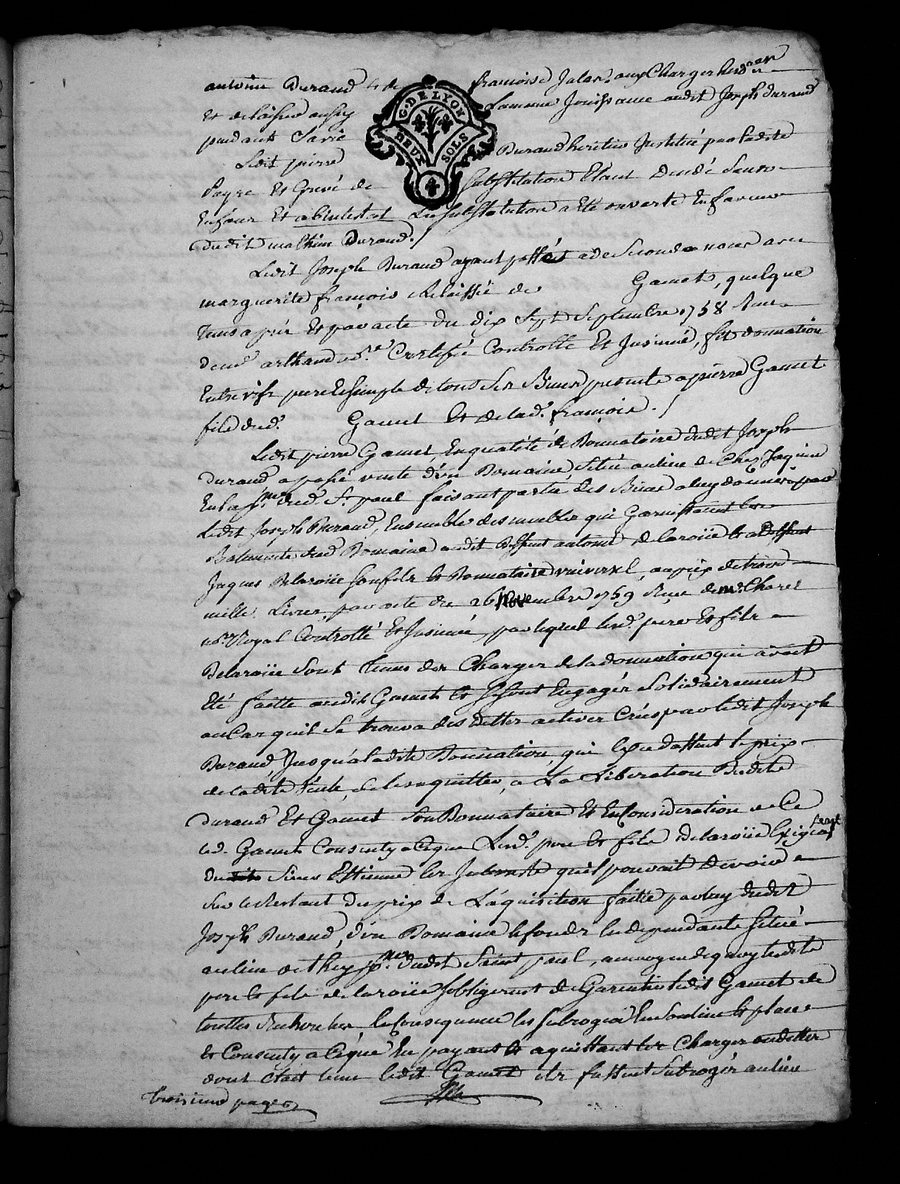 antoine Durand & de françoise Jalas aux Charges
et delaisser au sujet La meme Jouissance audit Joseph Durand
pendant Sa vie
G. DE LYON
DEUX SOLS
4
Ledit pierre Durand heritier Institué par ladite
Peyre et Grevé de Substitution Etant Decédé Sans
Enfans Et abintestat La substitution a été ouverte En faveur
dudit mathieu Durand./
Ledit Joseph Durand ayant passé a de Secondes noces avec
marguerite françois Relaissée de Gamet, quelque
tems après Et par acte du dix Sept Septembre 1758 Reçu
de me arthaud Certifié Controllé Et Insinué, fit donnation
Entre vifs pure et simple de tous Ses Biens presents a pierre Gamet
fils dud. Gamet Et de lad. françoise./
Ledit pierre Gamet, En qualité de Donnataire dudit Joseph
Durand a passé vente d'un Domaine Situé au lieu de Chez Jaquin
En la psse dud. St. paul faisant partie des Biens a luy donnés par
ledit Joseph Durand, Ensemble des meubles qui Garnissent les
Batiments dud. Domaine audit deffunt antoine Delaroüe et a deffunt
Jaques Delaroüe Son fils et Donnataire universel, au prix de trois
mille Livres par acte du 26 Novembre 1759 Reçu de me. Charet
nre Royal Controllé Et Insinué, par lequel lesd. pere et fils
Delaroüe Sont tenus des Charges de la donnation qui avait
Eté faitte audit Gamet et Se Sont Engagés Solidairement
au Cas qu'il Se trouva des dettes actives Crées par ledit Joseph
Durand Jusqu'a ladite Donnation, qui Excedassent le prix
de ladite vente, de les aquitter, a La Liberation Dudit
durand Et Gamet Son Donnataire Et En Consideration de Ce
led. Gamet Consenty a Ceque Lesd. pere et fils Delaroüe Exigeassent
du Sieur Estienne les Interests qu'il pouvait Devoir
Sur le Restant du prix de L'aquisition faitte par luy dudit
Joseph Durand, d'un Domaine et fonds en dependants Situé
au lieu de they psse. dudit Saint paul, au moyen de quoy lesdits
pere et fils de laroüe S'obligerent de Garentir ledit Gamet de
touttes Recherches, En Consequence les Subrogea En Son lieu et place
et Consenty a Ceque En payant et aquittant les Charges et dettes
dont Etait tenu ledit Gamet ils fussent Subrogés au lieu
troisieme page